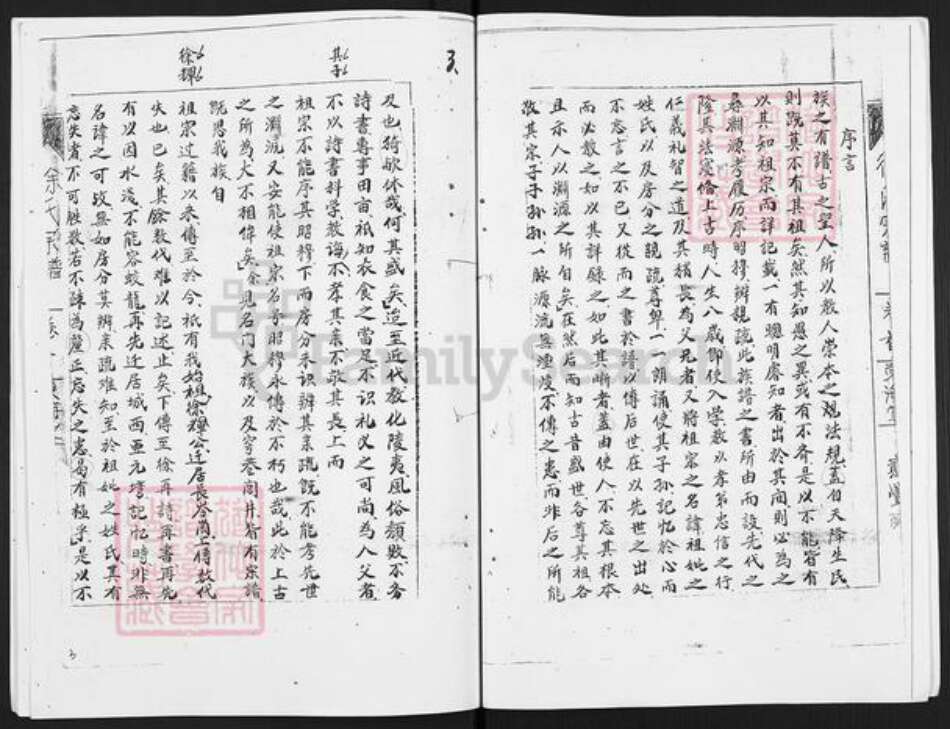 序言
族之有譜古之聖人所以教人崇本之規法規蓋自天降生民
則既莫不有其祖矣然其知愚之異或有不齊是以不能皆有
以其知祖宗而詳記載一有聰明睿知者出於其間則必為之
尋淵源考履历序明穆辨親疏此族譜之書所由而設先代之
隆其法寖倫上古時人生八歲即使入學教以孝弟忠信之行
仁義礼智之道及其稍長為父兄者又將祖宗之名諱祖妣之
姓氏以及房分之親疏尊卑一一朗誦使其子孫記忆於心而
不忘言之不已又從而之書於譜以傳后世在以先世之出处
而必敬之如以其詳錄之如此其晰者蓋由使人不忘其根本
且示人以淵源之所自矣在然后而知古昔盛世各尊其祖各
敬其宗子子孫孫一脉源流無煙没不傳之患而非后之所能
3
及也猗欤休哉何其盛矣迨至近代教化陵夷風俗頹敗不务
詩書專事田亩祇知衣食之當足不识礼仪之可尚為人父者
其子
不以詩書科学教誨不孝其亲不敬其長上而
祖宗不能序其昭穆下而房分未识辨其亲疏既不能考先世
之淵源又安能使祖宗名号昭穆永傳於不朽也哉此於上古
之所為大不相侔矣余見名門大族以及穷巷閭井皆有宗譜
既思我族自
徐驛
祖宗过籍以来傳至於今祇有我始祖徐驛公迁居長岑崗上傳数代
失也已矣其餘数代难以記述止矣下傳至徐再詩再書再先
有以因水淺不能容蛟龍再先迁居城西
名諱之可攷無如房分莫辨亲疏难知至於祖妣之姓氏具有
忘失者不可胜数若不疎為釐正忘失之患曷有極乎是以不
余氏宗譜
3
FamilySearch